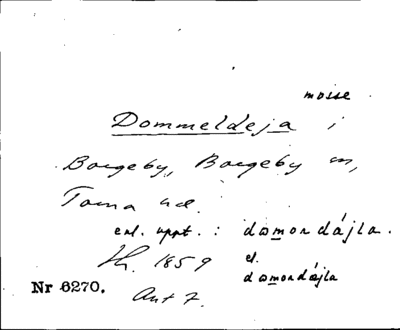 mosse
Dommeldeja i
Borgeby, Borgeby sn,
Torna hd.
enl. uppt. : domordájla.
Th. 1859 el.
domordájla
Nr 6270. Ant 7.